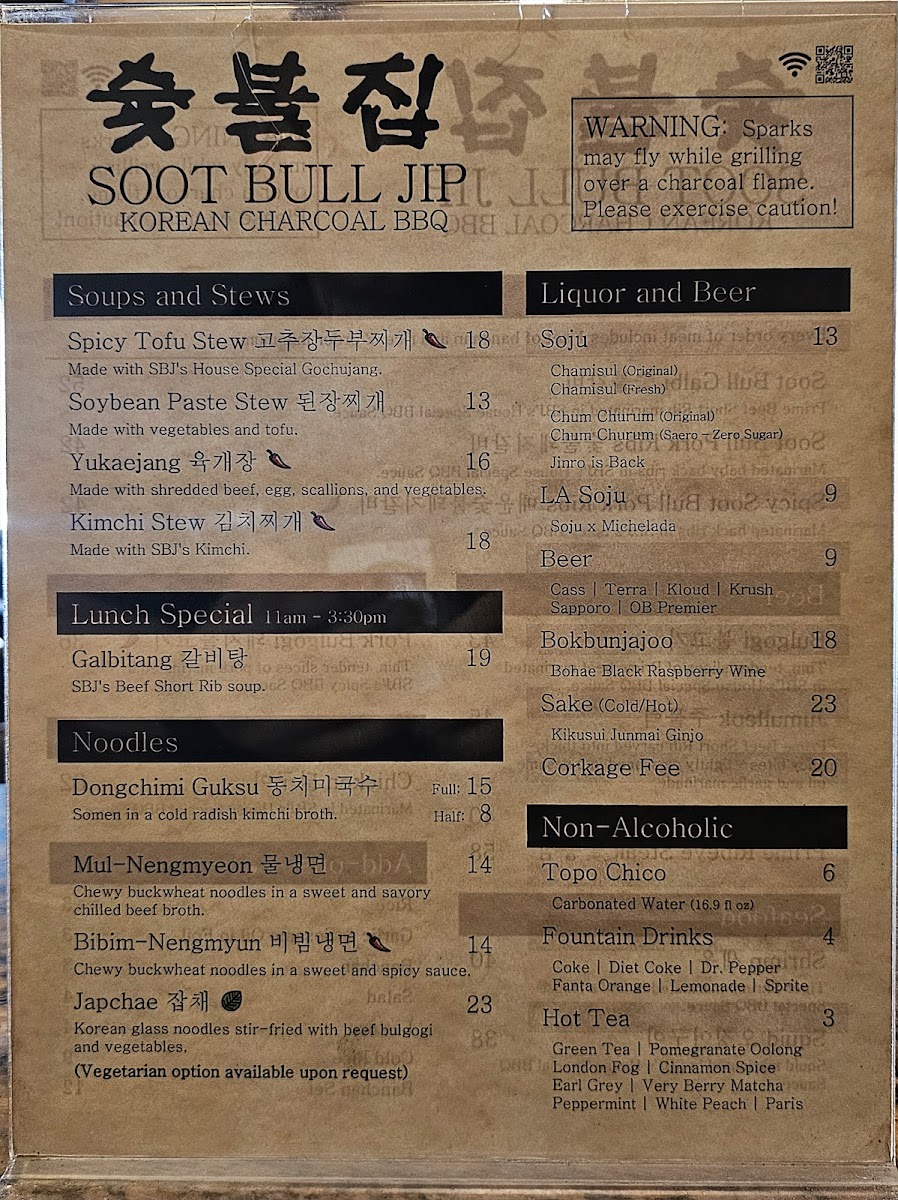 숯불집
SOOT BULL JIP
KOREAN CHARCOAL BBQ
WARNING: Sparks
may fly while grilling
over a charcoal flame.
Please exercise caution!
Soups and Stews
Spicy Tofu Stew 고추장두부찌개 18
Made with SBJ's House Special Gochujang.
Soybean Paste Stew 된장찌개 13
Made with vegetables and tofu.
Yukaejang 육개장 16
Made with shredded beef, egg, scallions, and vegetables.
Kimchi Stew 김치찌개 18
Made with SBJ's Kimchi.
Lunch Special 11am - 3:30pm
Galbitang 갈비탕 19
SBJ's Beef Short Rib soup.
Noodles
Dongchimi Guksu 동치미국수 Full: 15
Somen in a cold radish kimchi broth. Half: 8
Mul-Nengmyeon 물냉면 14
Chewy buckwheat noodles in a sweet and savory
chilled beef broth.
Bibim-Nengmyun 비빔냉면 14
Chewy buckwheat noodles in a sweet and spicy sauce.
Japchae 잡채 23
Korean glass noodles stir-fried with beef bulgogi
and vegetables.
(Vegetarian option available upon request)
Liquor and Beer
Soju 13
Chamisul (Original)
Chamisul (Fresh)
Chum Churum (Original)
Chum Churum (Saero - Zero Sugar)
Jinro is Back
LA Soju 9
Soju x Michelada
Beer 9
Cass | Terra | Kloud | Krush
Sapporo | OB Premier
Bokbunjajoo 18
Bohae Black Raspberry Wine
Sake (Cold/Hot) 23
Kikusui Junmai Ginjo
Corkage Fee 20
Non-Alcoholic
Topo Chico 6
Carbonated Water (16.9 fl oz)
Fountain Drinks 4
Coke | Diet Coke | Dr. Pepper
Fanta Orange | Lemonade | Sprite
Hot Tea 3
Green Tea | Pomegranate Oolong
London Fog | Cinnamon Spice
Earl Grey | Very Berry Matcha
Peppermint | White Peach | Paris